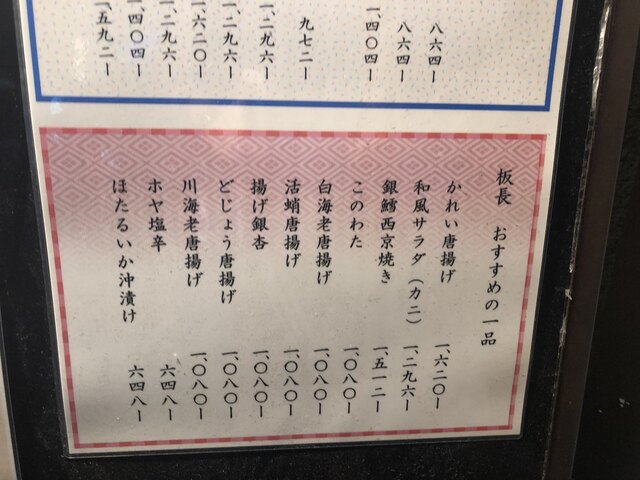 八六四ー
八六四ー
一、四〇四ー
九七二ー
一、二九六ー
一、二九六ー
一、六二〇ー
一、二九六ー
一、四〇四ー
一、五九二ー
板長 おすすめの一品
かれい唐揚げ 一、六二〇ー
和風サラダ(カニ) 一、二九六ー
銀鱈西京焼き 一、五一二ー
このわた 一、〇八〇ー
白海老唐揚げ 一、〇八〇ー
活蛸唐揚げ 一、〇八〇ー
揚げ銀杏 一、〇八〇ー
どじょう唐揚げ 一、〇八〇ー
川海老唐揚げ 一、〇八〇ー
ホヤ塩辛 六四八ー
ほたるいか沖漬け 六四八ー